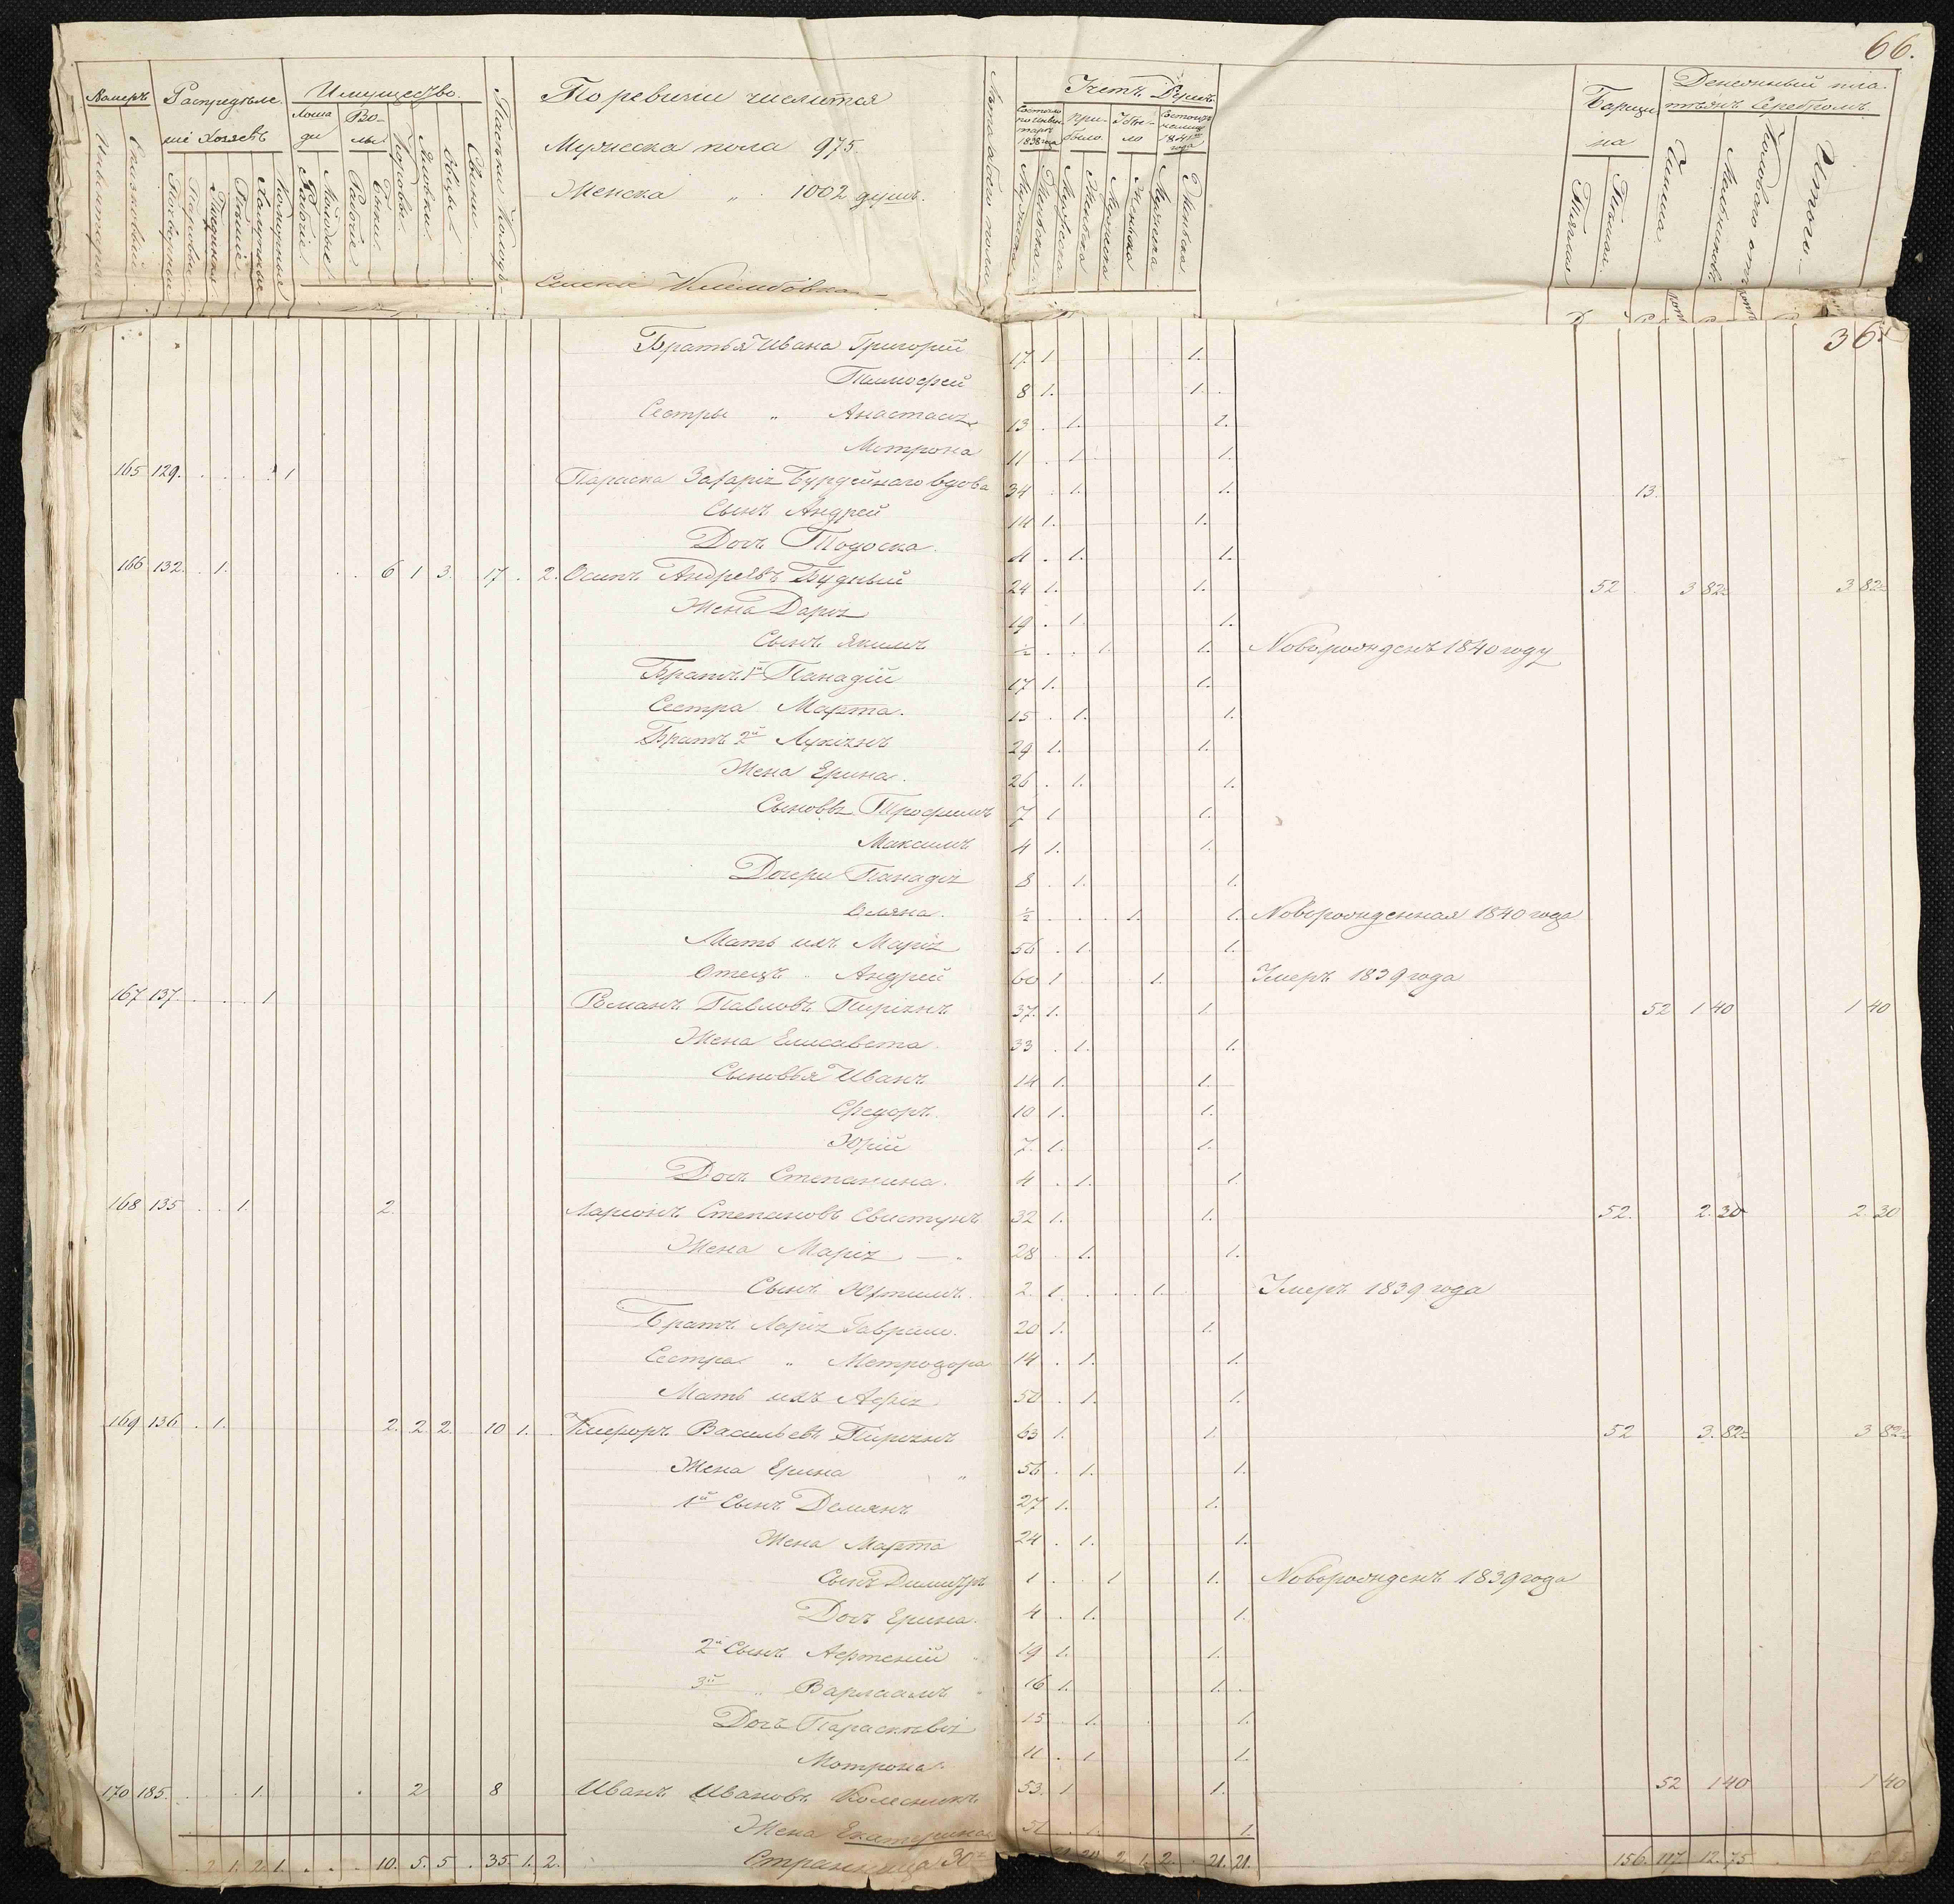 66.
Номеръ
Инвентарн
Списковый
Распредѣле
ніе Хозяевъ
Тягловыи
Пѣшіе
Имущество
Лоша
ди
Рабочіе
Молодые
Во-
лы
Рабочіе
Бычки
Коровы
Яловки
Овцы
Свиньи
По ревизіи числится
Мужеска пола 975.
Женска „ 1002 душъ.
Счетъ Душъ
Состояло по инвентарю 1838 года
При-
было
Убы-
ло
Состоитъ 1841 года
Мужеска
Женска
Мужеска
Женска
Мужеска
Женска
Мужеска
Женска
Барщи
на
Тяглая
Пѣшая
Денежный пла
тежъ Серебромъ
Чинша
Итого
36
Братья Ивана Григорій 17. 1. 1.
Тимофей 8 1. 1.
Сестры „ Анастасія 13 . 1. 1.
Мотрона 11 . 1. 1.
165 129. 1 Параска Захарія Бурдейнаго вдова 34 . 1. 1. 13.
Сынъ Андрей 14 1. 1.
Дочь Тодоска. 4 . 1. 1.
166 132. . 1. 6 1 3. 17 . 2. Осипъ Андреевъ Будный 24 1. 1. 52 3 82 3 82
Жена Дарія 19 . 1. 1.
Сынъ Якимъ ½ . . 1. 1. Новорожденъ 1840 году
Братъ 1й Панадій 17 1. 1.
Сестра Марта. 15 . 1. 1.
Братъ 2й Лукіянъ 29 1. 1.
Жена Ерина. 26 . 1. 1.
Сыновья Трофимъ 7 1 1.
Максимъ 4 1. 1.
Дочери Панадія 8 . 1. 1.
Оляна. ½ . . . 1. 1. Новорожденная 1840 года
Мать ихъ Марія 56 . 1. 1.
Отецъ „ Андрей 60 1 1. Умеръ 1839 года
167 137 . . . 1 Романъ Павловъ Пиріянъ 37. 1. 1. 52 1 40 1 40
Жена Елисавета. 33 . 1. 1.
Сыновья Иванъ 14 1. 1.
Федоръ. 10 1. 1.
Юрій 7. 1. 1.
Дочь Степанина. 4 . 1. 1.
168 135 . . 1. 2. Ларіонъ Степановъ Свистунъ 32 1. 1. 52. 2. 30 2. 30
Жена Марія 28 . 1. 1.
Сынъ Юхтимъ. 2. 1. . . . 1. Умеръ 1839 года
Братъ Ларія Гаврило. 20 1. 1.
Сестра „ Метродора 14 . 1. 1.
Мать ихъ 50 . 1. 1.
169 136 . 1. 2. 2. 2. 10 1. . Никифоръ Васильевъ Пиріянъ 63 1. 1. 52 3. 82 3 82
Жена Ерина „ 56 . 1. 1.
1й Сынъ Демянъ 27 1. 1.
Жена Марта 24 . 1. 1.
Сынъ Димитръ 1 . . 1 1. Новорожденъ 1839 года
Дочь Ерина. 4 . 1. 1.
2й Сынъ Артеній 19 1. 1.
3й „ Варлаамъ 16 1. 1.
Дочь Параскевія 15 . 1. 1.
Мотрона. 11 . 1 1.
170 185. . . . 1. 2 8 Иванъ Ивановъ Колесникъ 53. 1 1. 52 1 40 1 40
Жена Екатерина 1. 1.
2. 1. 2. 1. 10. 5. 5 . 35. 1. 2. Страница 30я 21. 20. 2. 1. 2. . 21. 21. 156. 117. 12. 75